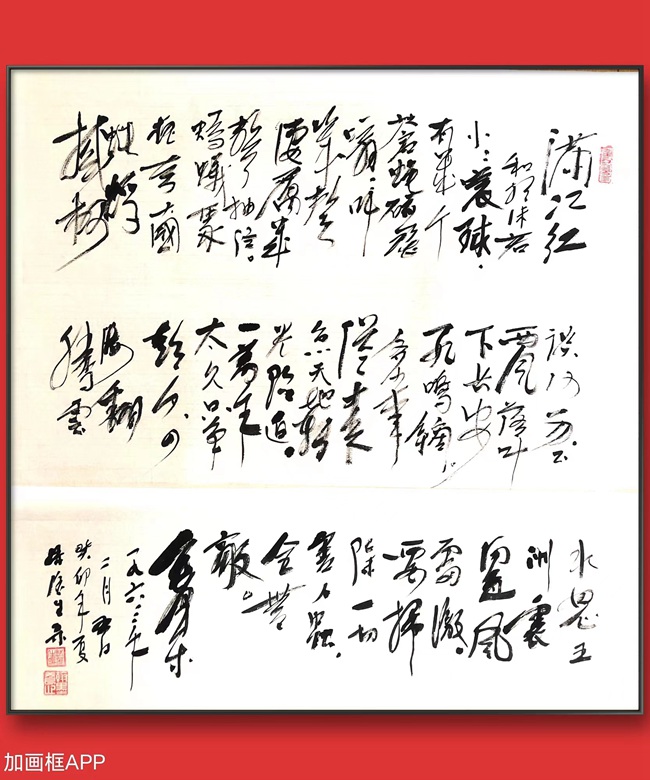 满江红
和郭沫若
小小寰球，
有几个
苍蝇碰壁
嗡嗡叫
几声
凄厉几
声抽泣。
蚂蚁缘
槐夸大国
蚍蜉
撼树
谈何易。正
西风落叶
下长安
飞鸣镝
多少事
从来
急天地转
光阴迫。
一万年
太久只争
朝夕。四
海翻
腾云
水怒五
洲震
荡风
雷激。
要扫
除一切
害人虫，
全无
敌。
毛泽东
一九六三年
二月五日
癸卯年夏
加画框APP